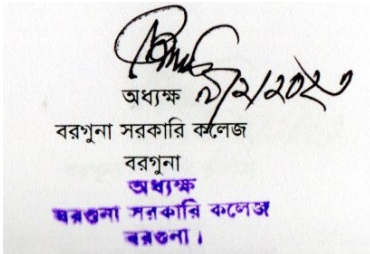 অধ্যক্ষ
বরগুনা সরকারি কলেজ
বরগুনা
অধ্যক্ষ
বরগুনা সরকারি কলেজ
বরগুনা।